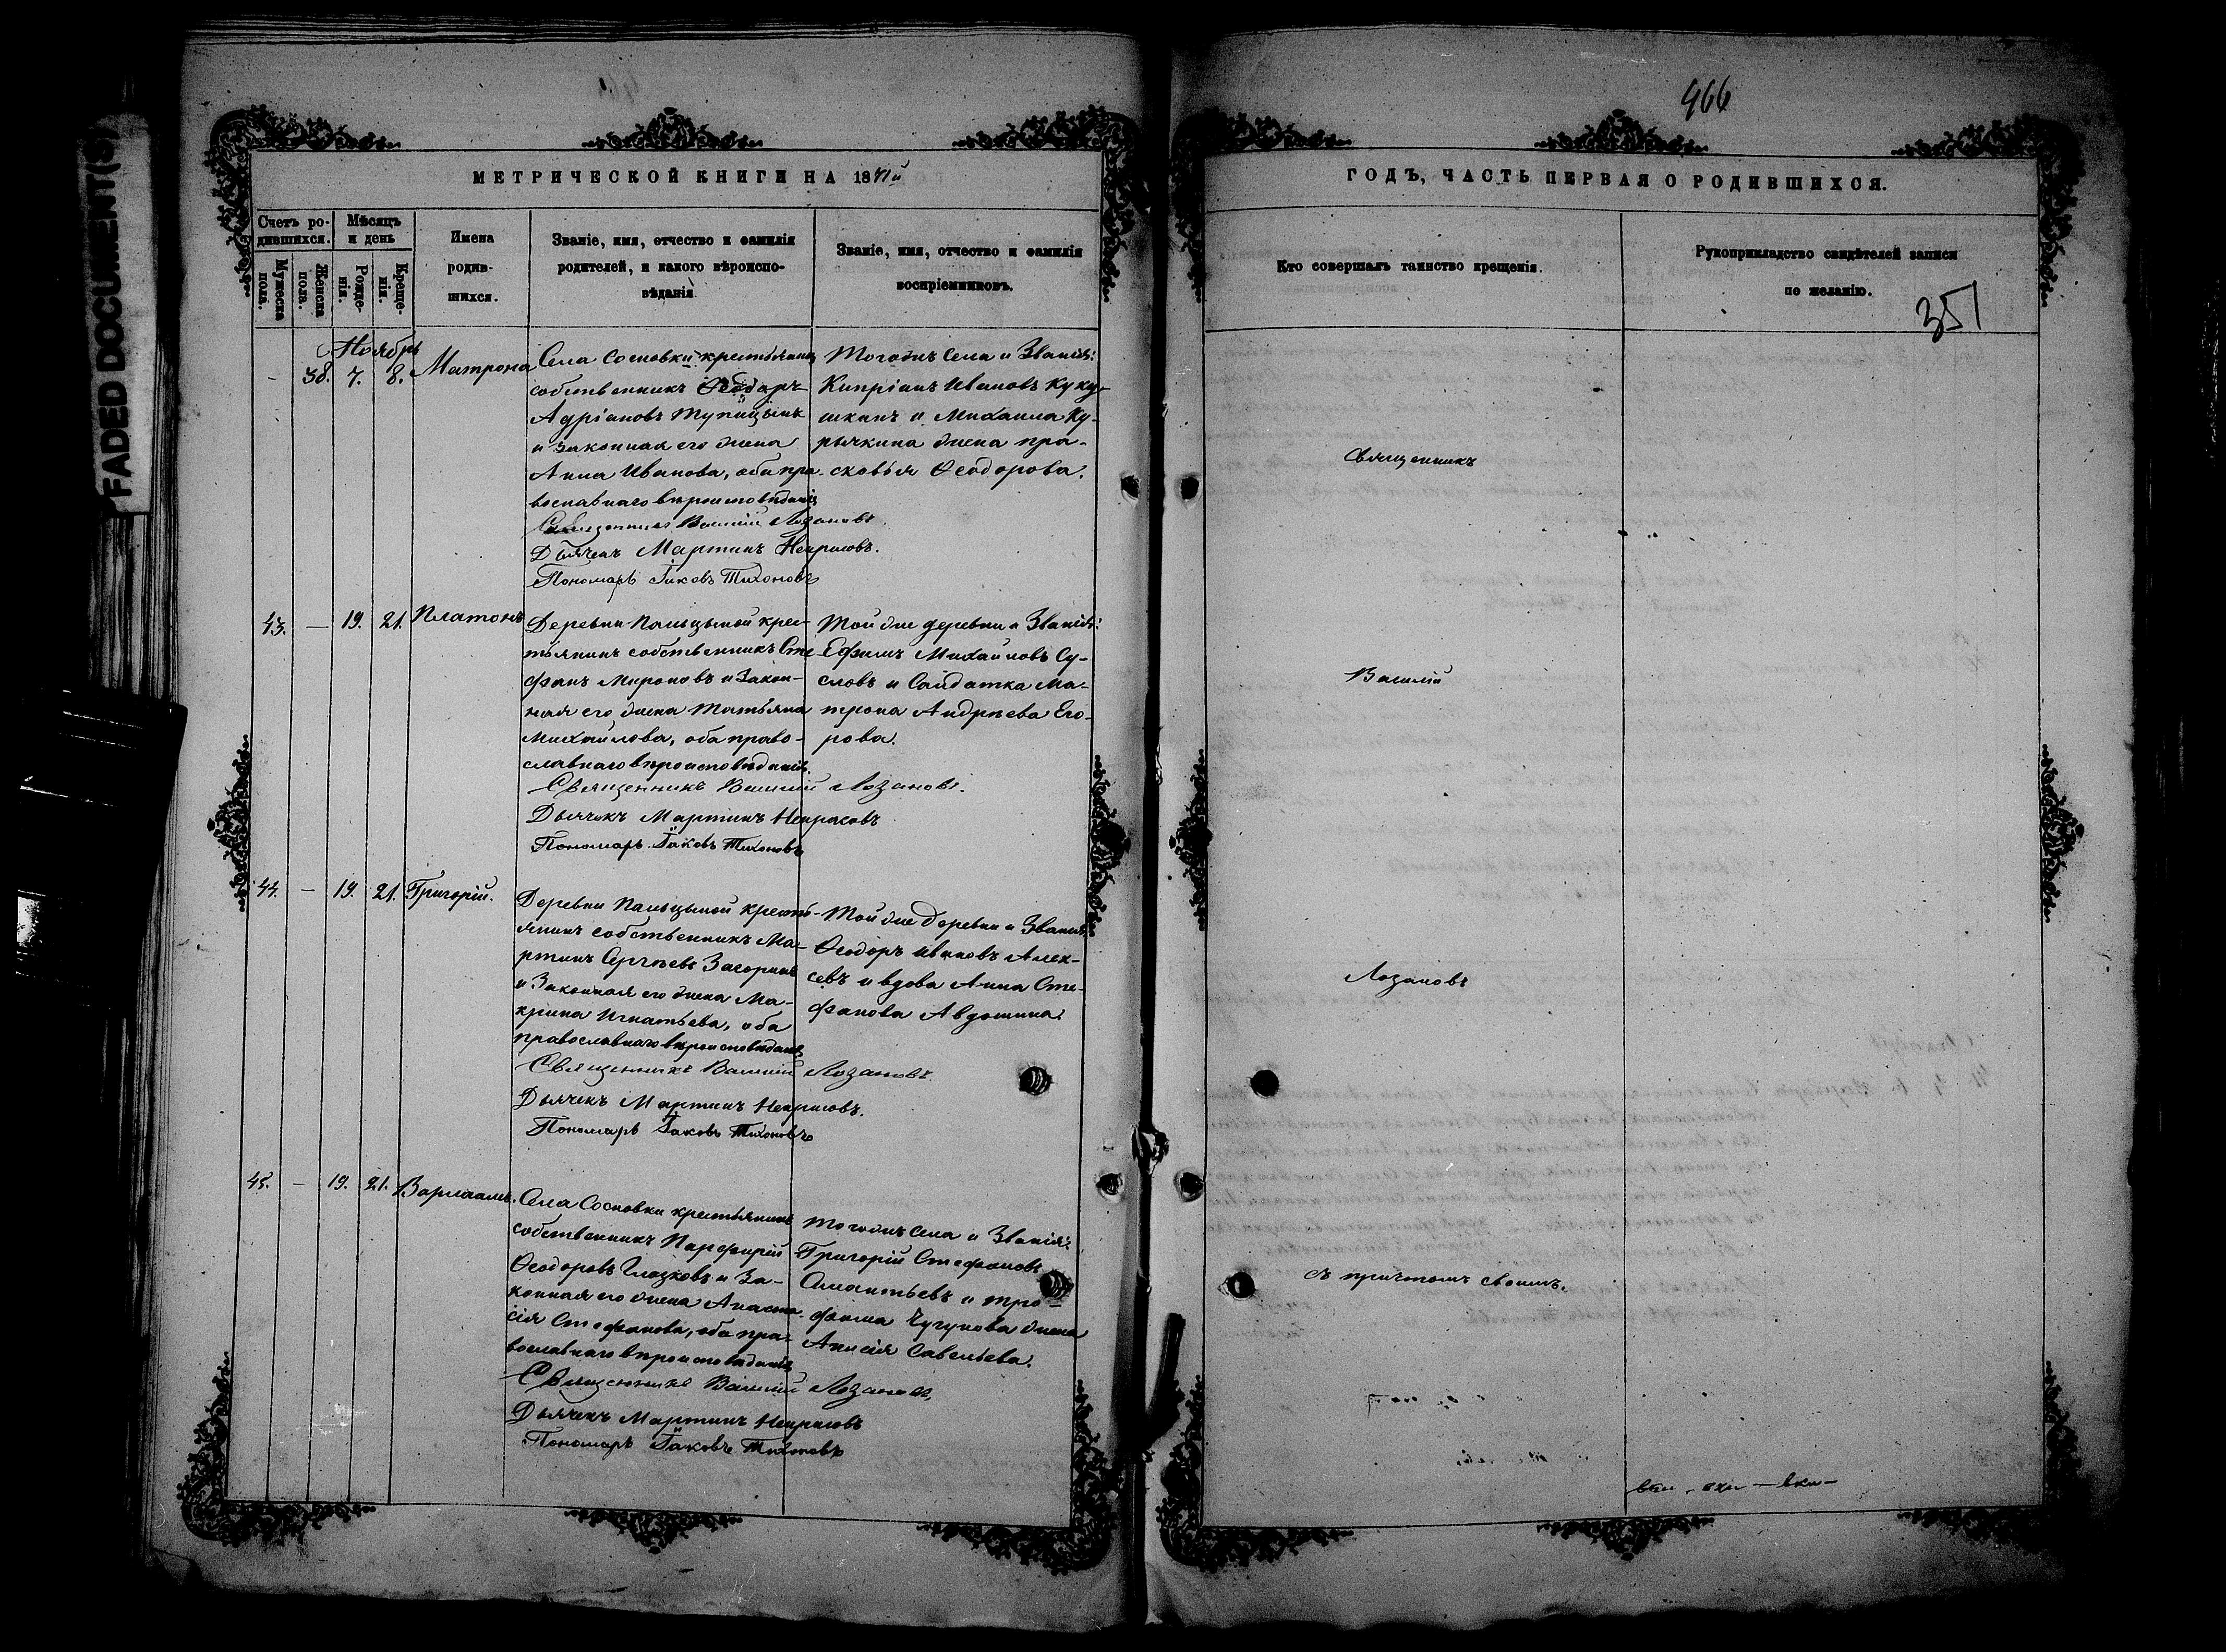 FADED DOCUMENT(S)
466
МЕТРИЧЕСКОЙ КНИГИ НА 1871й
ГОДЪ, ЧАСТЬ ПЕРВАЯ О РОДИВШИХСЯ.
Счетъ ро-
дившихся.
Мужеска
пола.
Женска
пола.
Мѣсяцъ
и день
Рожде-
нія.
Креще-
нія.
Имена
родив-
шихся.
Званіе, имя, отчество и фамилія
родителей, и какого вѣроиспо-
вѣданія
Званіе, имя, отчество и фамилія
воспріемниковъ.
Кто совершалъ таинство крещенія.
Рукоприкладство свидѣтелей записи
по желанію.
351
Ноябрь
- 38. 7. 8. Матрона
Села Сосновки крестьянинъ
собственникъ Ѳеодоръ
Адріановъ Тупицынъ
и законная его жена
Анна Иванова, оба пра
вославнаго вѣроисповѣданія
Священникъ Василій Лозановъ
Дьячекъ Мартинъ Некрасовъ.
Пономарь Іаковъ Тихоновъ
Тогожъ села и Званія:
Кипріанъ Ивановъ Куку-
шкинъ и Михаила Ку-
рычкина жена Пра-
сковья Ѳеодорова.
43. — 19. 21. Платонъ
Деревни Пальцыной крес-
тьянинъ собственникъ Сте
фанъ Мироновъ и закон-
ная его жена Татьяна
Михайлова, оба право-
славнаго вѣроисповѣданія.
Священникъ Василій Лозановъ.
Дьячекъ Мартинъ Некрасовъ
Пономарь Іаковъ Тихоновъ
Той же деревни и Званія:
Ефимъ Михайловъ Су-
словъ и Солдатка Ма-
трона Андреева Его-
рова.
44. — 19. 21. Григорій.
Деревни Пальцыной кресть-
янинъ собственникъ Ма-
ртинъ Сергѣевъ Загоринъ
и Законная его жена Ма-
крина Игнатьева, оба
православнаго вѣроисповѣданія
Священникъ Василій Лозановъ
Дьячекъ Мартинъ Некрасовъ.
Пономарь Іаковъ Тихоновъ
Той же деревни и Званія
Ѳеодоръ Ивановъ Алек-
сѣевъ и вдова Анна Сте-
фанова Авдошина
45. — 19. 21. Варлаамъ.
Села Сосновки крестьянинъ
собственникъ Парфирій
Ѳеодоровъ Глазковъ и За-
конная его жена Анаста-
сія Стефанова, оба пра-
вославнаго вѣроисповѣданія
Священникъ Василій Лозановъ
Дьячекъ Мартинъ Некрасовъ
Пономарь Іаковъ Тихоновъ
Тогожъ села и Званія:
Григорій Стефановъ
Силантьевъ и Тро-
фима Чугунова жена
Анисія Савельева.
Священникъ
Василій
Лозановъ
съ причтомъ своимъ.